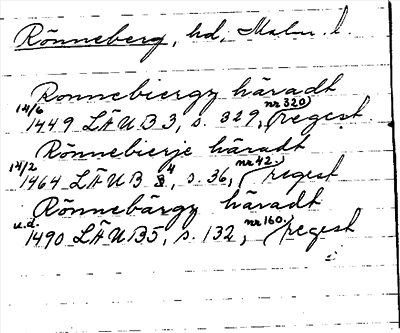 Rönneberg, hd, Malm. l.
Ronnebiergy häradt
14/6 1449 LÄUB3, s. 329, nr 320, regest.
Rönnebierje häradt
14/2 1464 LÄUB 4, s. 36, nr 42. regest
Rönnebärgy häradt
u.d. 1490 LÄUB5, s. 132, nr 160. regest